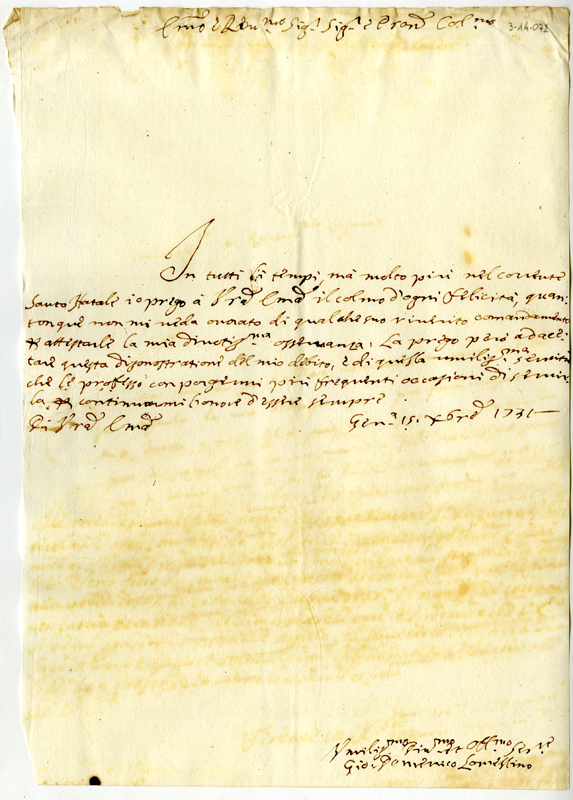 Em͞o e Rev.mo Sig.r Sig.r e Pron͞e Col.mo
3-14-072
In tutti li tempi, mà molto più nel corrente
Santo Natale io prego à Vr͞a Em͞a il colmo d'ogni felicità, quan,
tonque non mi veda onorato di qualche suo riverito comandamento
attestarle la mia divotis.ma osservanza. La prego però ad accet,
tare questa dimostratione del mio debito, e di quella umilis.ma servitù
che le professo con porgermi più frequenti occasioni di servir,
la continuarmi l'onore d'essere sempre
Di Vr͞a Em͞a
Gen.a 15. Xbre 1731
Umilis.mo Div.mo et Obb.mo Ser.re
Gio: Domenico Lomellino